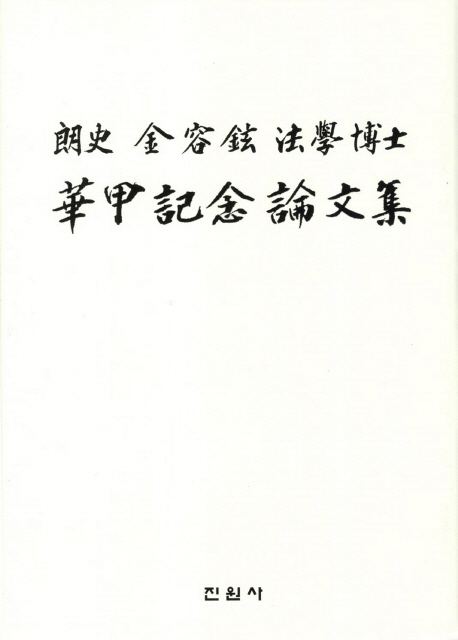 朗史 金容鉉 法學博士
華甲記念論文集
진원사